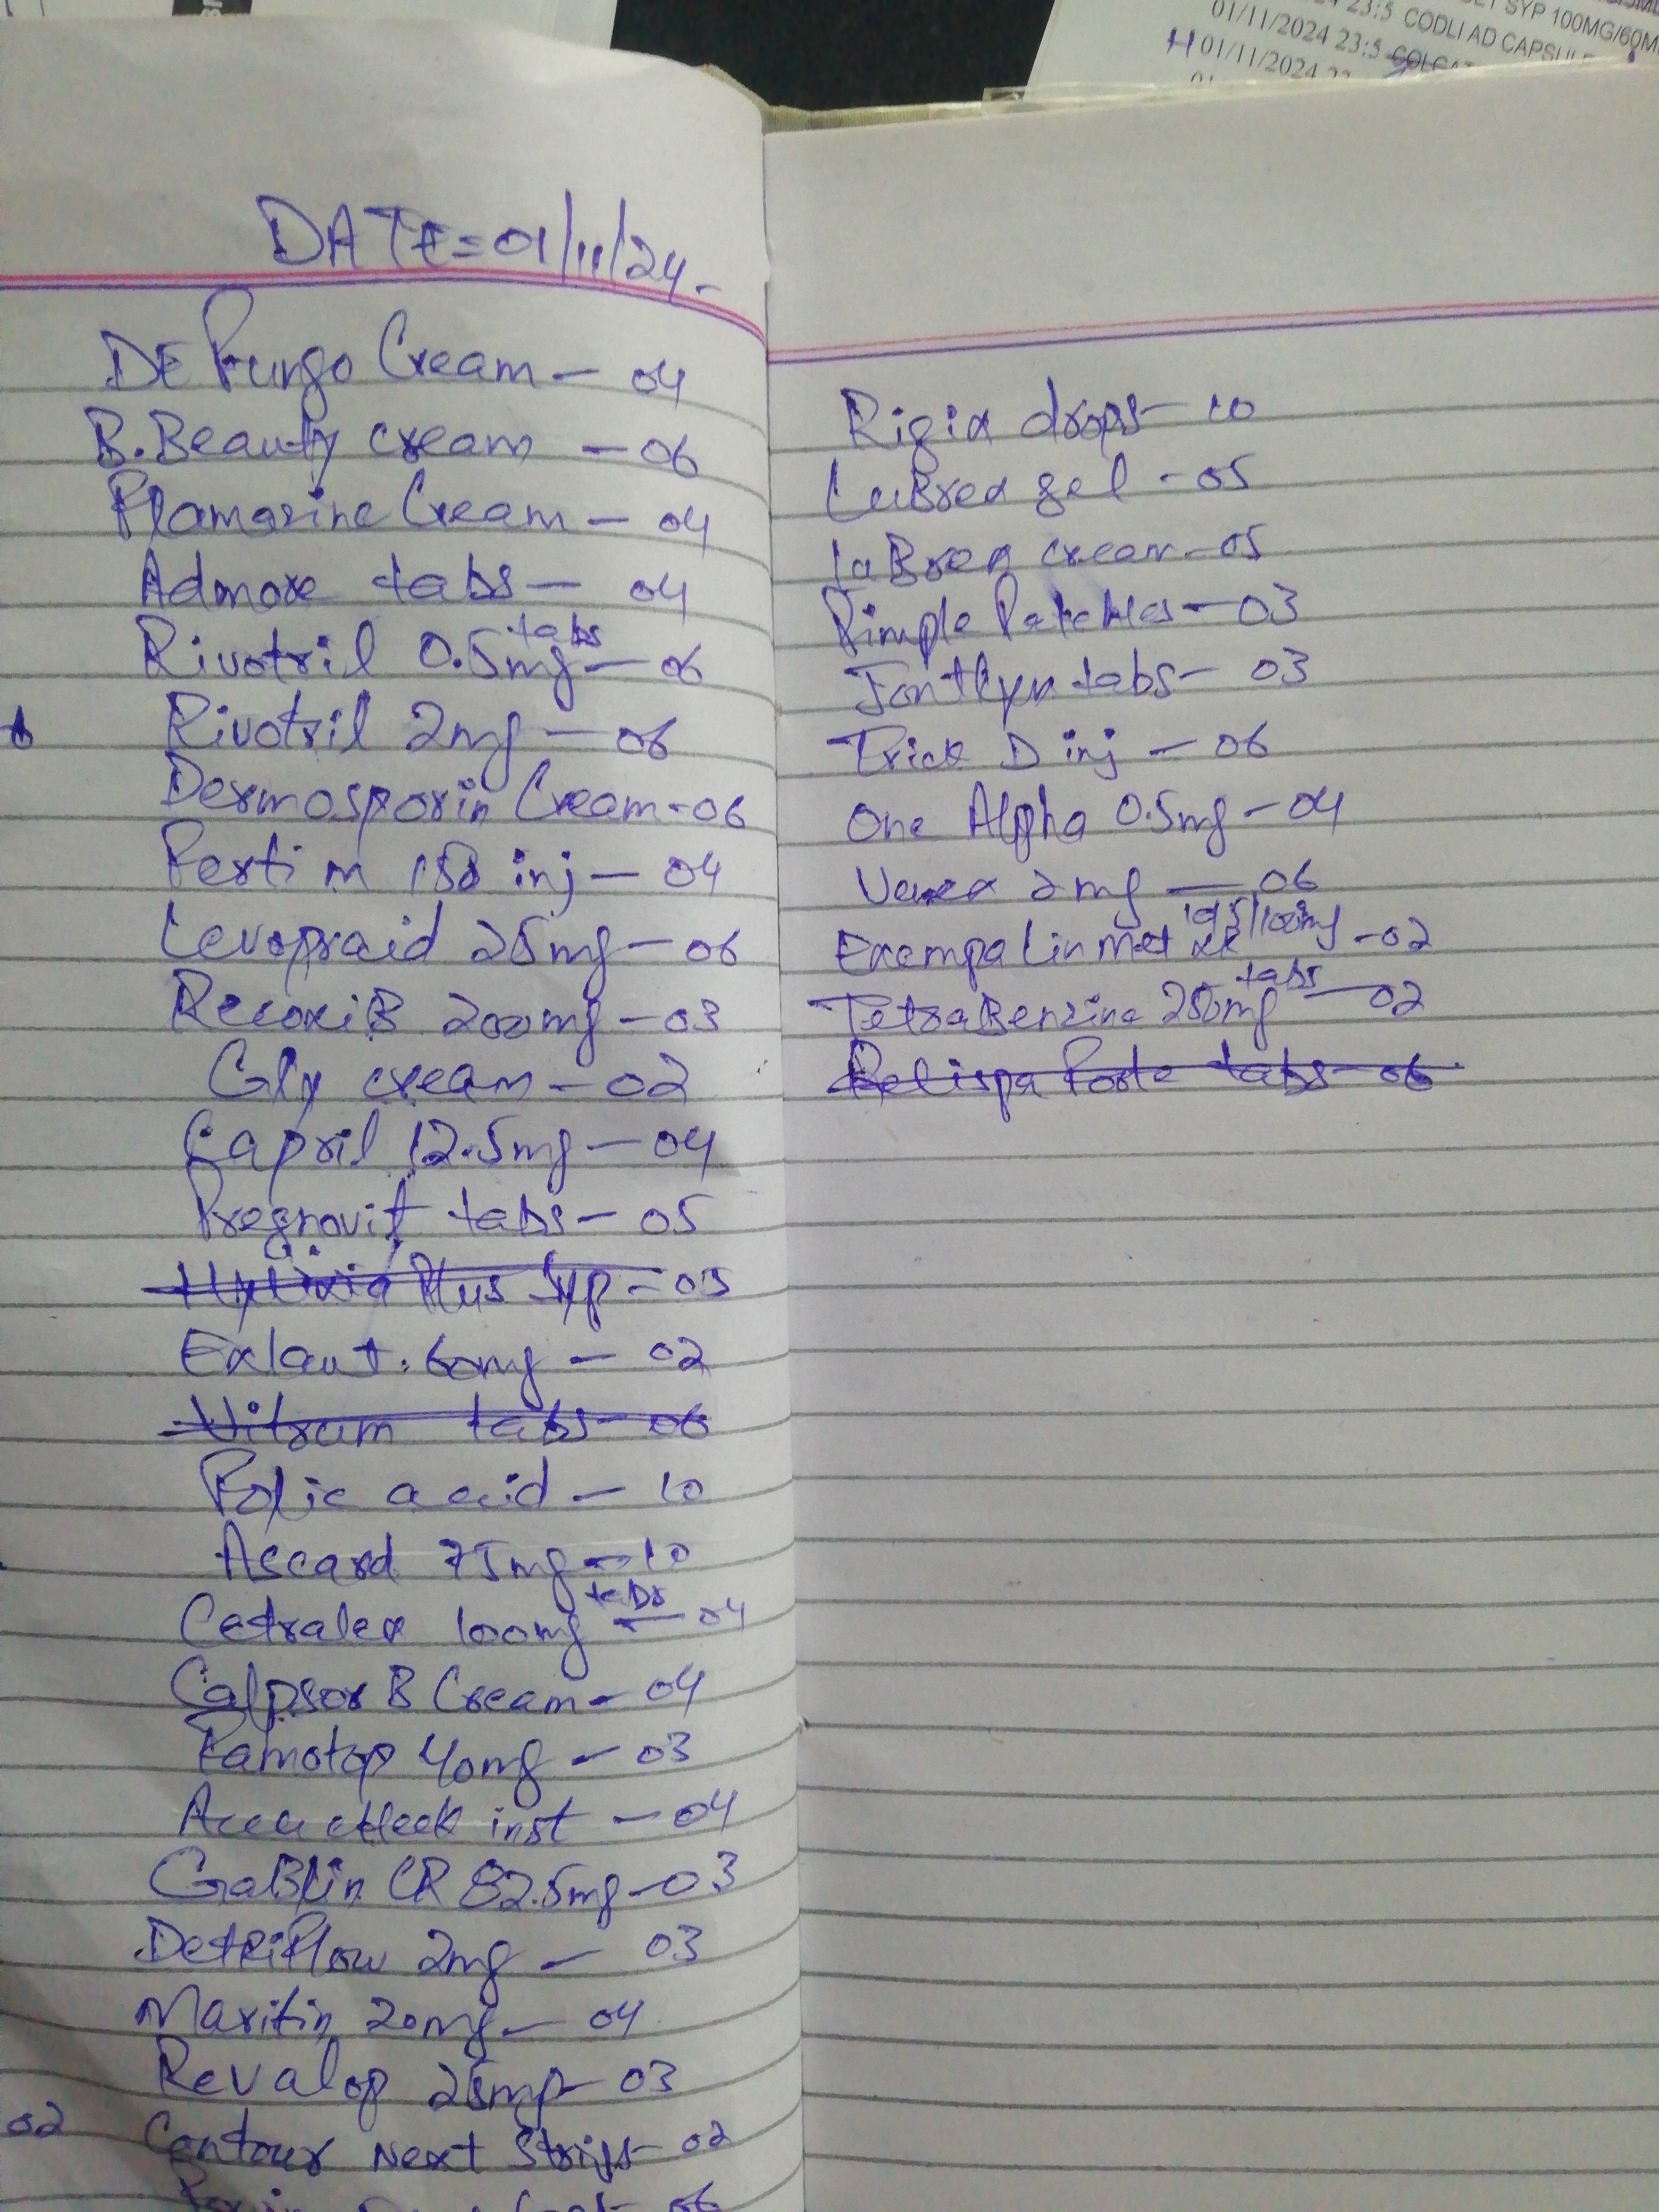 SYP 100MG/60M
01/11/2024 23:5 CODLI AD CAPSULE
H 01/11/2024
DATE=01/11/24.
DE Fungo Cream - 04
B.Beauty cream - 06
Flamazine Cream - 04
Admore tabs - 04
Rivotril 0.5mg tabs - 06
Rivotril 2mg - 06
Dermosporin Cream - 06
Ferti m 150 inj - 04
Levopraid 25mg - 06
RecoxiB 200mg - 03
Gly cream - 02
Capril 12.5mg - 04
Pregnovit tabs - 05
Plus Syp - 03
Exlant. 60mg - 02
Vitrum tabs - 06
Folic acid - 10
Ascard 75mg - 10
Cetralex 100mg tabs - 04
Calpsor B Cream - 04
Famotop 40mg - 03
Accu check inst - 04
GaBlin CR 82.5mg - 03
Detriflow 2mg - 03
Maxitin 20mg - 04
Revalop 25mg - 03
02 Contour Next Strips - 02
06
Rigix drops - 10
LuBrex gel - 05
LaBrex cream - 05
Pimple Patches - 03
Jonthyn tabs - 03
Trick D inj - 06
One Alpha 0.5mg - 04
2mg - 06
Exempa Lin Met XR - 02
TetraBenzine 250mg tabs - 02
Relispa Forte tabs - 06